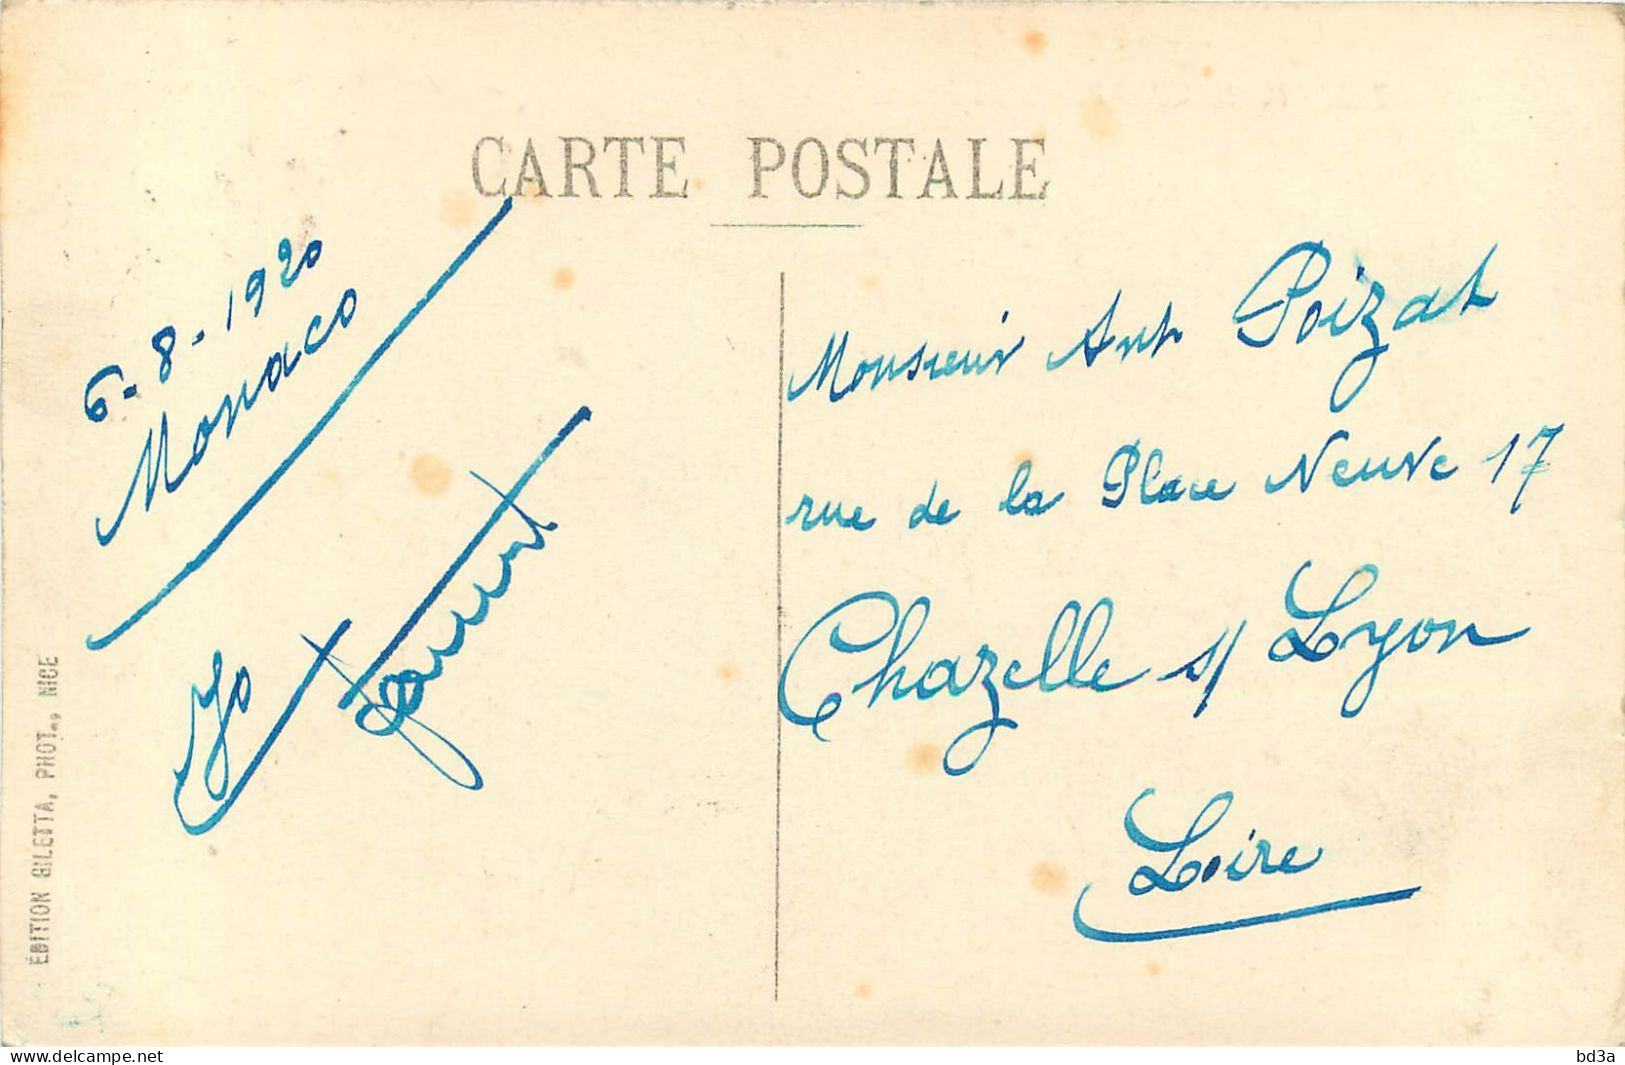 CARTE POSTALE
6-8-1920
Monaco
Jo
Monsieur Ant Poizat
rue de la Place Neuve 17
Chazelle s/ Lyon
Loire
ÉDITION GILETTA, PHOT., NICE
www.delcampe.net
bd3a